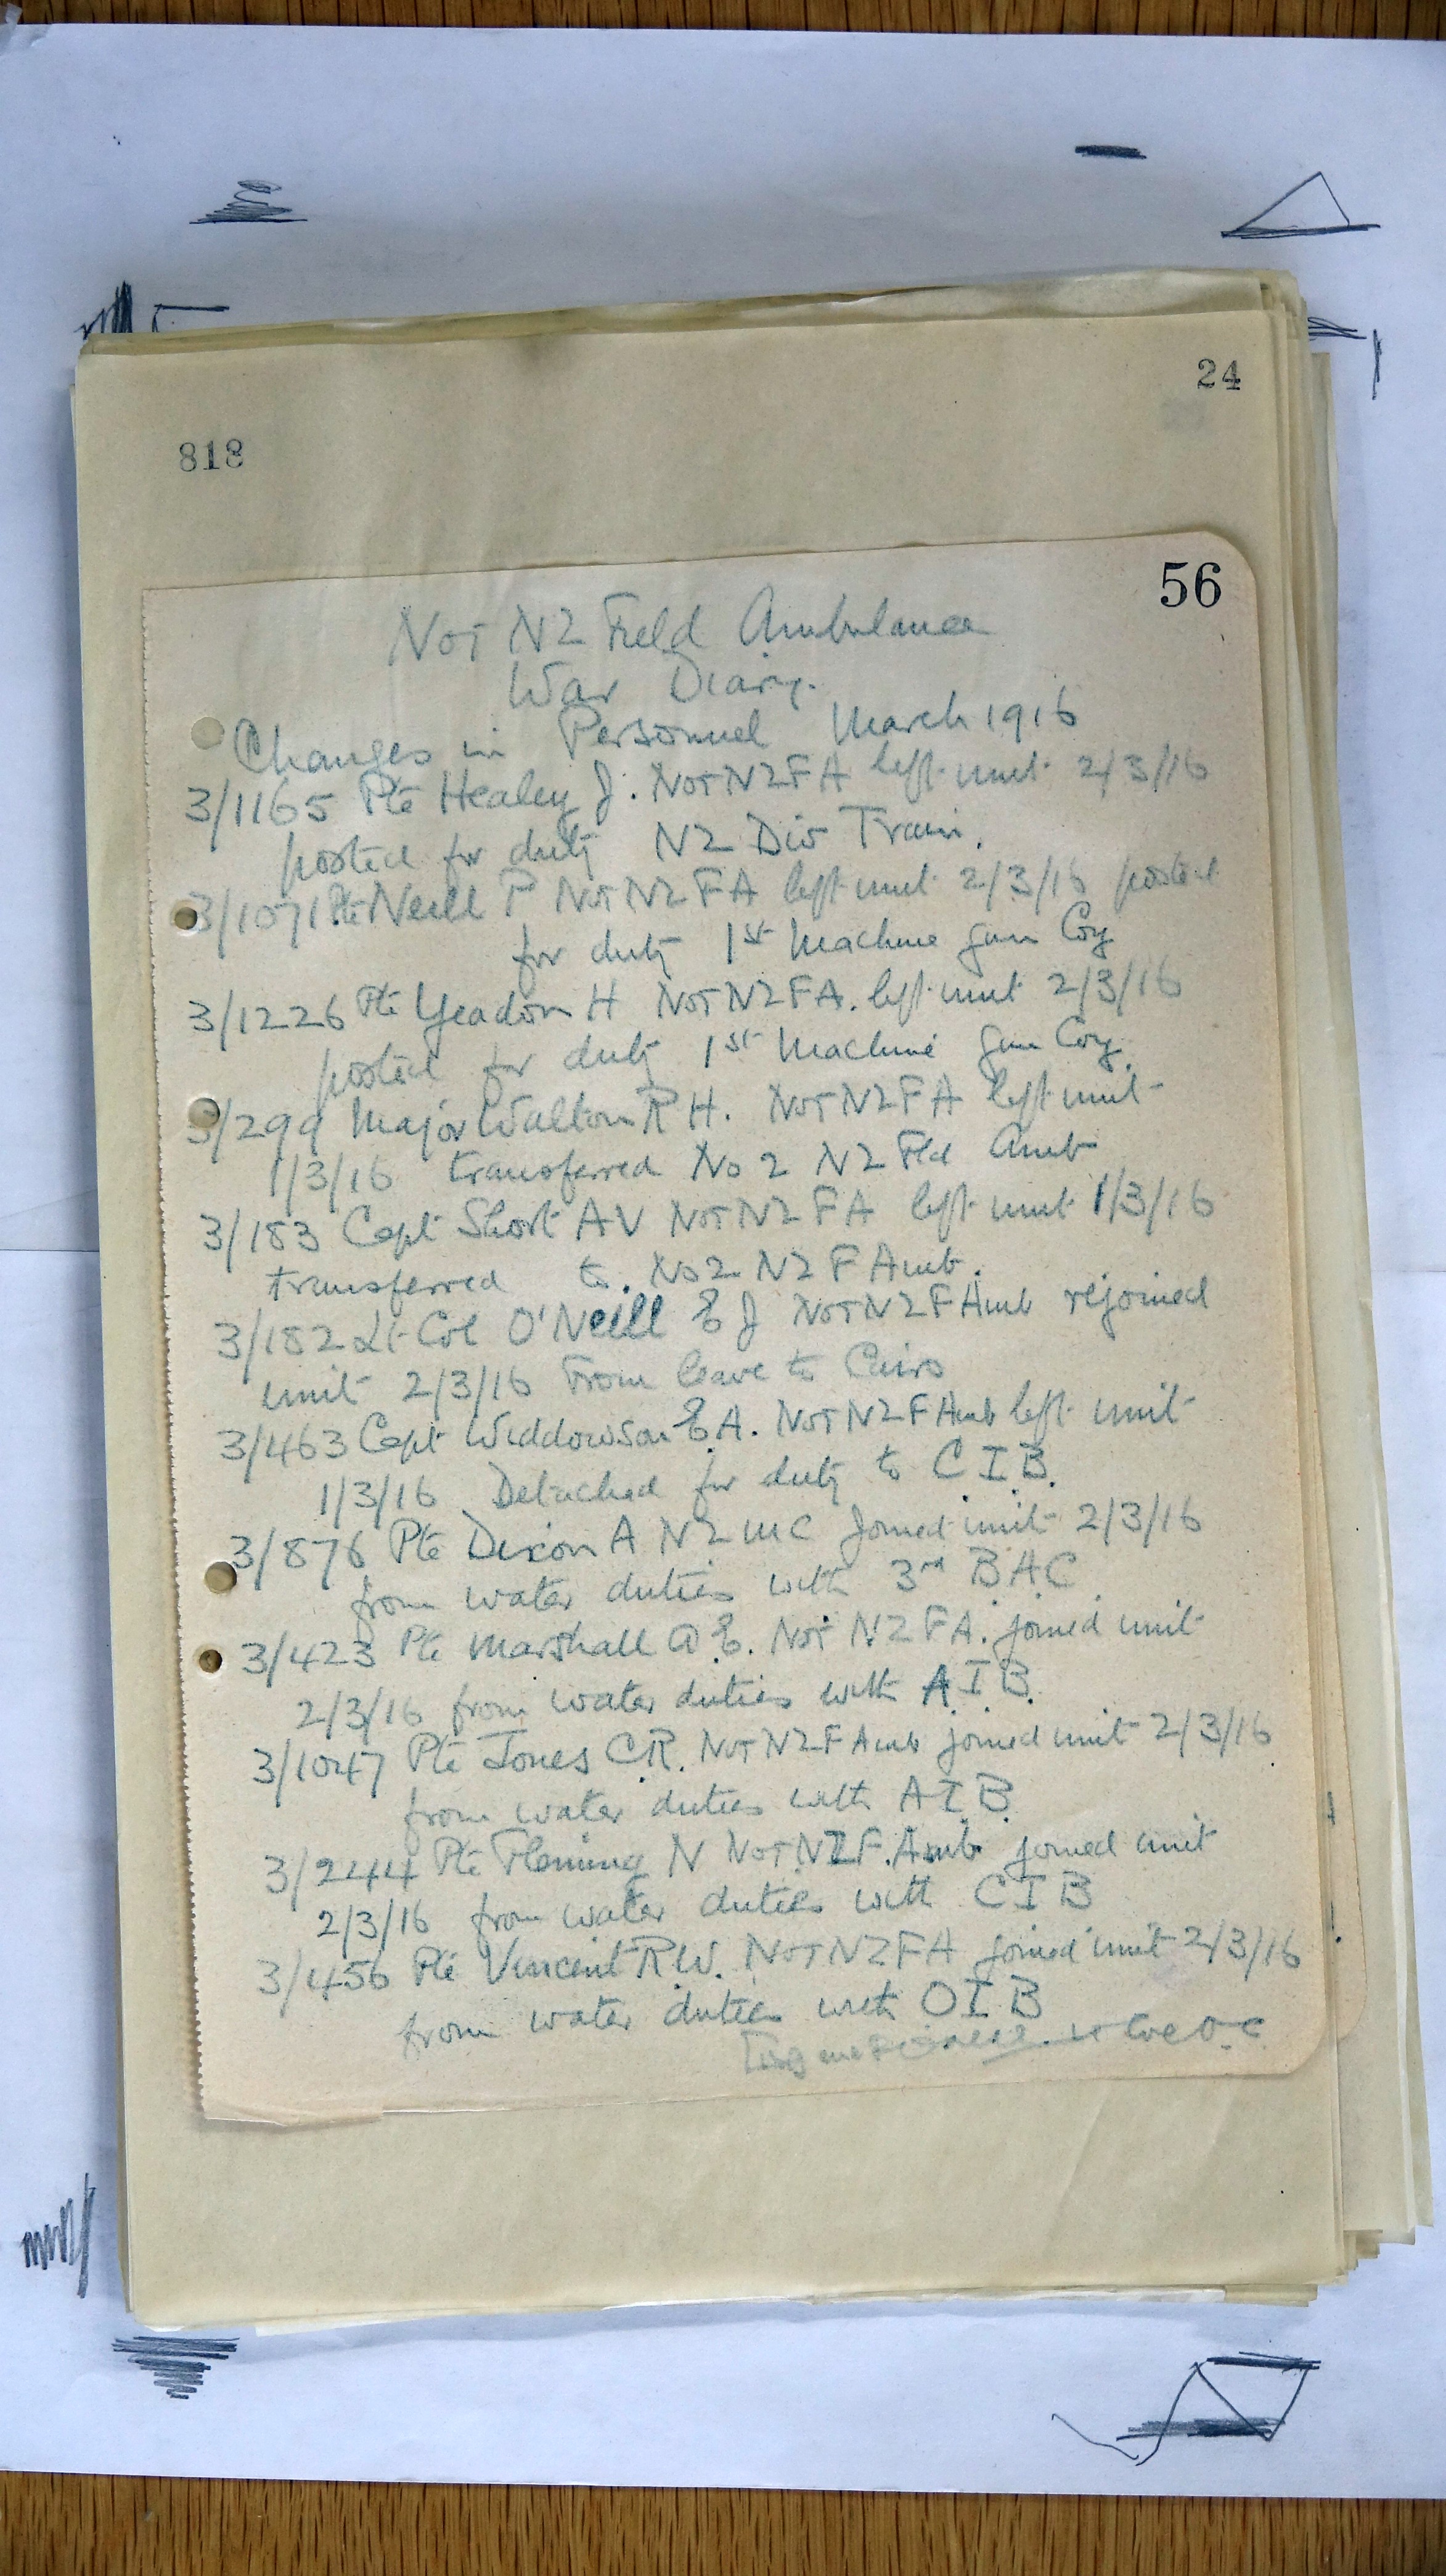 24
818
56
No 1 NZ Field Ambulance
War Diary.
Changes in Personnel March 1916
3/1165 Pte Healey J. No 1 NZ FA left unit 2/3/16
posted for duty NZ Div Train.
3/1071 Pte Neill P No 1 NZ FA left unit 2/3/16 posted
for duty 1st Machine gun Coy
3/1226 Pte Yeadon H No 1 NZ FA. left unit 2/3/16
posted for duty 1st Machine gun Coy.
3/299 Major Walton R H. No 1 NZ FA left unit
1/3/16 transferred No 2 NZ Fld Amb
3/183 Capt Short AV No 1 NZ FA left unit 1/3/16
transferred to. No 2 NZ F Amb.
3/182 Lt Col O'Neill E J No 1 NZ F Amb rejoined
unit 2/3/16 From leave to Cairo
3/463 Capt Widdowson E.A. No 1 NZ F Amb left unit
1/3/16 Detached for duty to C I B.
3/876 Pte Dixon A NZ MC Joined unit 2/3/16
from water duties with 3rd B.A.C.
3/423 Pte Marshall A E. No 1 NZ FA. joined unit
2/3/16 from water duties with A I B.
3/1047 Pte Jones C.R. No 1 NZ F Amb joined unit 2/3/16
from water duties with A.I.B.
3/244 Pte Fleming N No 1 NZ F. Amb joined unit
2/3/16 from water duties with C I B
3/456 Pte Vincent R.W. No 1 NZ FA joined unit 2/3/16
from water duties with O I B
Lt Col O.C